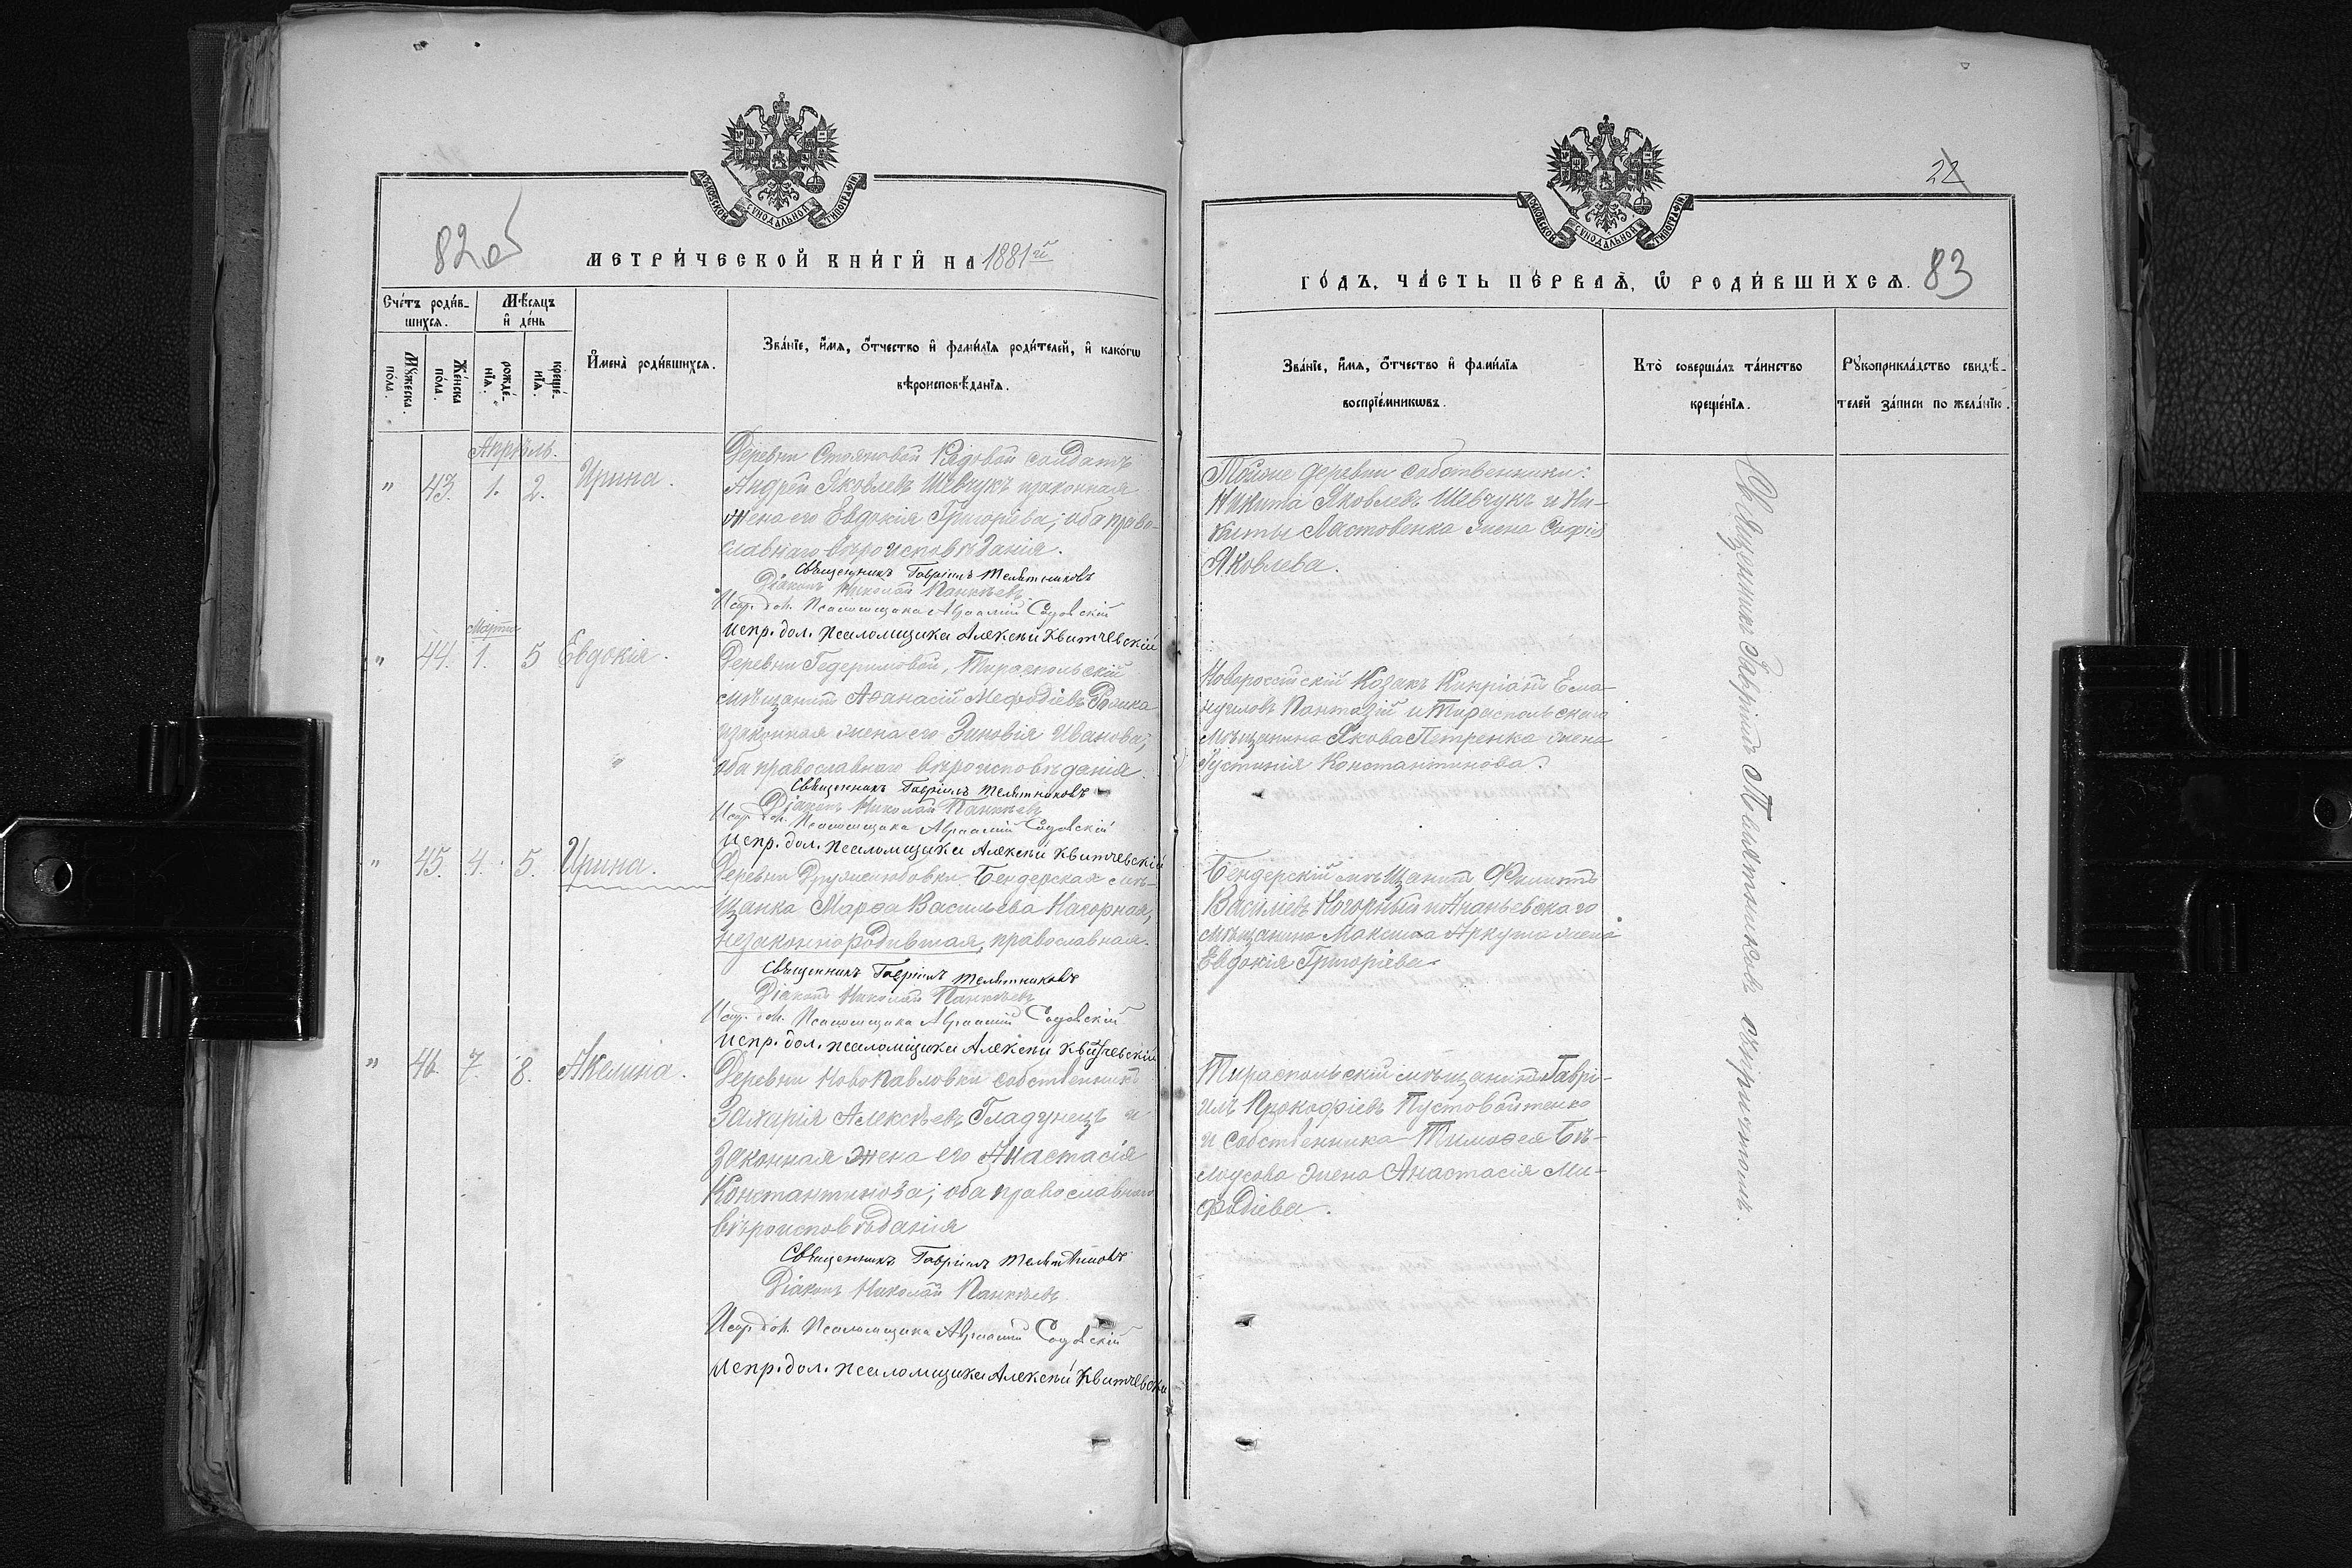 82об
МОСКОВСКОЙ СѴНОДАЛЬНОЙ ТИПОГРАФІИ
МЕТРИ́ЧЕСКОЙ КНИ́ГИ НА 1881й
Сче́тъ роди́в-
шихся.
Мѣ́сяцъ
и҆ де́нь
Мꙋ́жеска
по́ла.
Же́нска
по́ла.
рожде́-
нїѧ.
креще́-
нїѧ.
И҆мена̀ роди́вшихсѧ.
Зва́нїе, и҆́мѧ, ѻ҆́тчество и҆ фами́лїѧ роди́телей, и҆ како́гѡ
вѣроисповѣ́данїѧ.
Апрѣль.
" 43. 1. 2. Ирина.
Деревни Стояновой Рядовой солдатъ
Андрей Яковлевъ Шевчукъ изаконная
жена его Евдокія Григоріева; оба право-
славнаго вѣроисповѣданія.
Священникъ Гавріилъ Телятниковъ
Діаконъ Николай Панкѣевъ
Испр. дол. Псаломщика Садовскій
Испр. дол. псаломщика Алексѣй Квитчевскій
Марта
" 44. 1. 5 Евдокія.
Деревни Гедеримовой, Тираспольскій
мѣщанинъ Аѳанасій Меѳодіевъ
изаконная жена его Зиновія Иванова;
оба православнаго вѣроисповѣданія.
Священникъ Гавріилъ Телятниковъ
Діаконъ Николай Панкѣевъ
Испр. дол. Псаломщика Садовскій
Испр. дол. псаломщика Алексѣй Квитчевскій
" 45. 4. 5. Ирина.
Деревни Дружелюбовки Бендерская мѣ-
щанка Марѳа Васильева Нагорная,
незаконнородившая, православная.
Священникъ Гавріилъ Телятниковъ
Діаконъ Николай Панкѣевъ
Испр. дол. Псаломщика Садовскій
Испр. дол. псаломщика Алексѣй Квитчевскій
" 46. 7. 8. Акелина.
Деревни Новопавловки собственникъ
Захарія Алексѣевъ Гладунецъ и
законная жена его Анастасія
Константинова; оба православнаго
вѣроисповѣданія
Священникъ Гавріилъ Телятниковъ
Діаконъ Николай Панкѣевъ
Испр. дол. Псаломщика Садовскій
Испр. дол. псаломщика Алексѣй Квитчевскій
22
83
МОСКОВСКОЙ СѴНОДАЛЬНОЙ ТИПОГРАФІИ
ГО́ДЪ, ЧА́СТЬ ПЕ́РВАѦ, Ѽ РОДИ́ВШИХСѦ.
Зва́нїе, и҆́мѧ, ѻ҆́тчество и҆ фами́лїѧ
воспрїе́мникѡвъ.
Кто̀ соверша́лъ та́инство
креще́нїѧ.
Рꙋкоприкла́дство свидѣ́-
телей за́писи по жела́нїю.
Тойже деревни собственники:
Никита Яковлевъ Шевчукъ и Ни-
киты Ластовенка жена Софія
Яковлева.
Новороссійскій Козакъ Кипріанъ Ема-
нуиловъ Пантазій и Тираспольскаго
мѣщанина Якова Петренка жена
Іустинія Константинова.
Бендерскій мѣщанинъ Филипъ
Василіевъ Нагорный и Ананьевскаго
мѣщанина Максима Аркуша жена
Евдокія Григоріева.
Тираспольскій мѣщанинъ Гаврі-
илъ Прокофіевъ Пустовойтенко
и собственника Тимоѳея Бѣ-
лоусова жена Анастасія Ми-
фодіева.
Священникъ Гавріилъ Телятниковъ съ причтомъ.